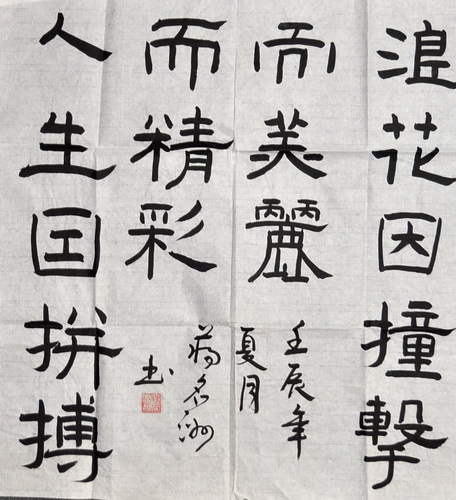 浪花因撞擊
而美麗
壬辰年
夏月
人生因拼搏
而精彩
书